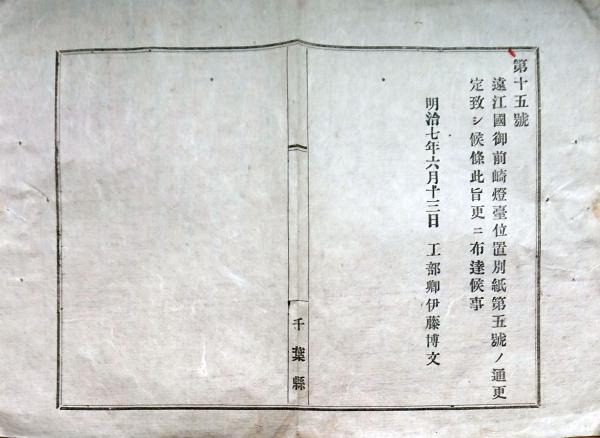 第十五號
遠江國御前崎燈臺位置別紙第五號ノ通更
定致シ候條此旨更ニ布達候事
明治七年六月十三日 工部卿伊藤博文
千葉縣